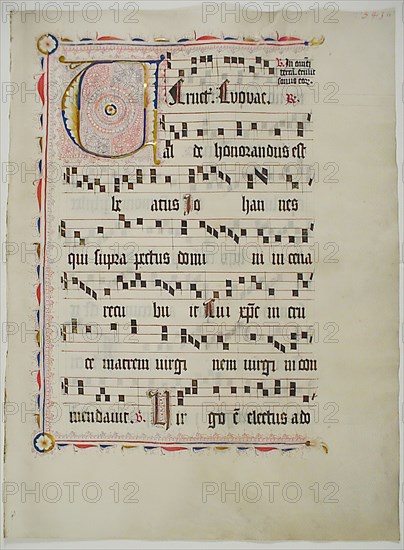 ℟. In omnē
terrā exivit
sonus eoꝝ.
Cruct. Evovae. ℟.
Val de honorandus est
be atus Jo han nes
qui supra pectus domi ni in cena
recu bu it Cui xp̄c in cru
ce matrem virgi nem virgi ni com
mendavit. ℣. Vir go ē electus a do
PHOTO 12